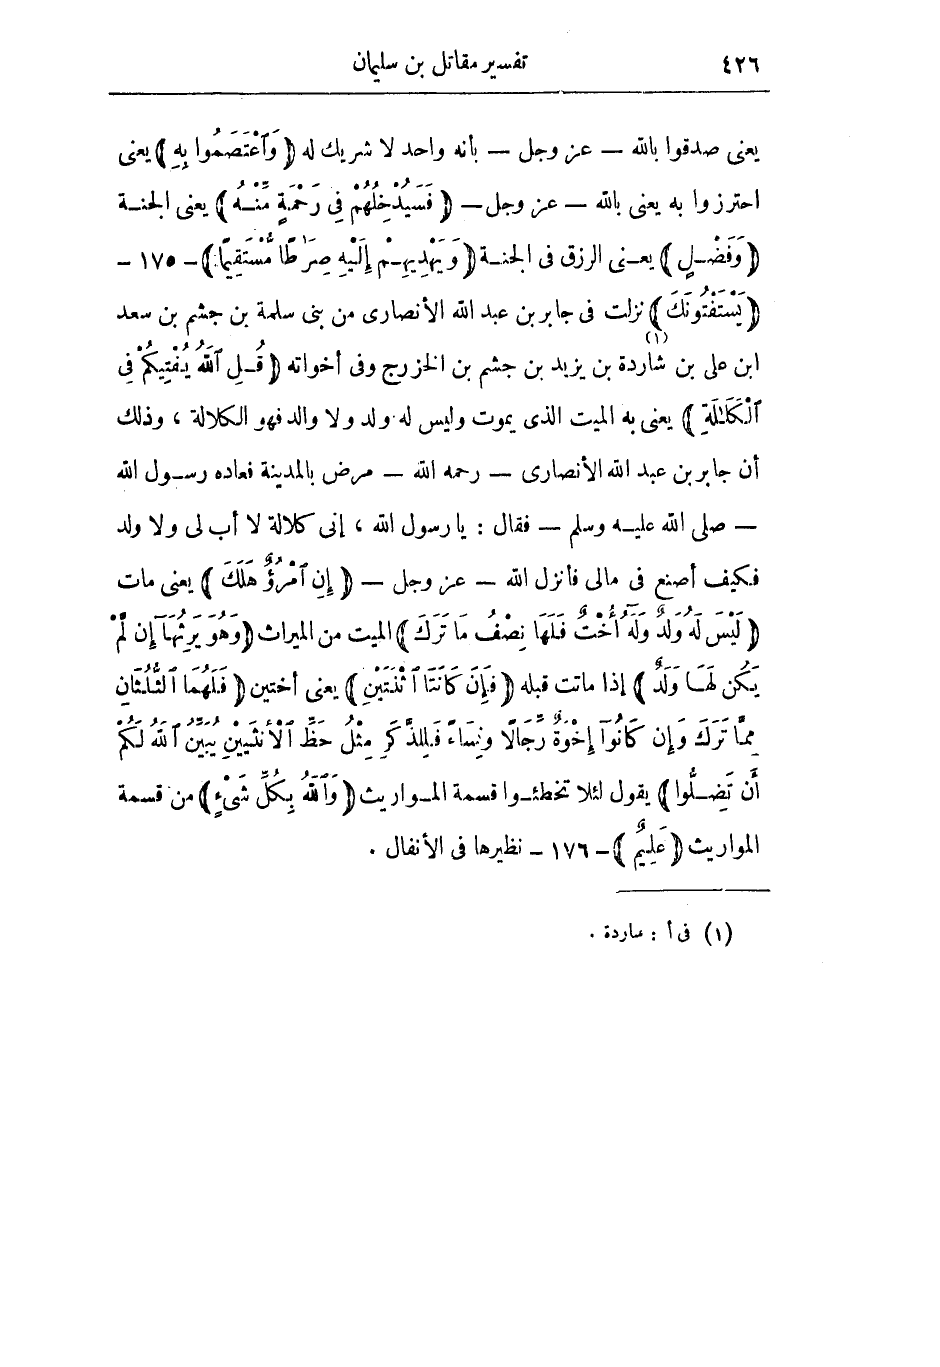 ٤٢٦ تفسير مقاتل بن سليمان
يعنى صدقوا بالله — عز وجل — بأنه واحد لا شريك له ﴿ وَٱعْتَصَمُوا بِهِ ﴾ يعنى
احترزوا به يعنى بالله — عز وجل — ﴿ فَسَيُدْخِلُهُمْ فِى رَحْمَةٍ مِّنْهُ ﴾ يعنى الجنة
﴿ وَفَضْلٍ ﴾ يعنى الرزق فى الجنة ﴿ وَيَهْدِيهِمْ إِلَيْهِ صِرَٰطًا مُّسْتَقِيمًا ﴾ - ١٧٥ -
﴿ يَسْتَفْتُونَكَ ﴾ نزلت فى جابر بن عبد الله الأنصارى من بنى سلمة بن جشم بن سعد
ابن على بن شاردة (١) بن يزيد بن جشم بن الخزرج وفى أخواته ﴿ قُلِ ٱللَّهُ يُفْتِيكُمْ فِى
ٱلْكَلَٰلَةِ ﴾ يعنى به الميت الذى يموت وليس له ولد ولا والد فهو الكلالة ، وذلك
أن جابر بن عبد الله الأنصارى — رحمه الله — مرض بالمدينة فعاده رسول الله
— صلى الله عليه وسلم — فقال : يا رسول الله ، إنى كلالة لا أب لى ولا ولد
فكيف أصنع فى مالى فأنزل الله — عز وجل — ﴿ إِنِ ٱمْرُؤٌ هَلَكَ ﴾ يعنى مات
﴿ لَيْسَ لَهُ وَلَدٌ وَلَهُٓ أُخْتٌ فَلَهَا نِصْفُ مَا تَرَكَ ﴾ الميت من الميراث ﴿ وَهُوَ يَرِثُهَآ إِن لَّمْ
يَكُن لَهَا وَلَدٌ ﴾ إذا ماتت قبله ﴿ فَإِن كَانَتَا ٱثْنَتَيْنِ ﴾ يعنى أختين ﴿ فَلَهُمَا ٱلثُّلُثَانِ
مِمَّا تَرَكَ وَإِن كَانُوٓا إِخْوَةً رِّجَالًا وَنِسَاءً فَلِلذَّكَرِ مِثْلُ حَظِّ ٱلْأُنثَيَيْنِ يُبَيِّنُ ٱللَّهُ لَكُمْ
أَن تَضِلُّوا ﴾ يقول لئلا تخطئوا قسمة المواريث ﴿ وَٱللَّهُ بِكُلِّ شَىْءٍ ﴾ من قسمة
المواريث ﴿ عَلِيمٌ ﴾ - ١٧٦ - نظيرها فى الأنفال .
(١) فى أ : ساردة .